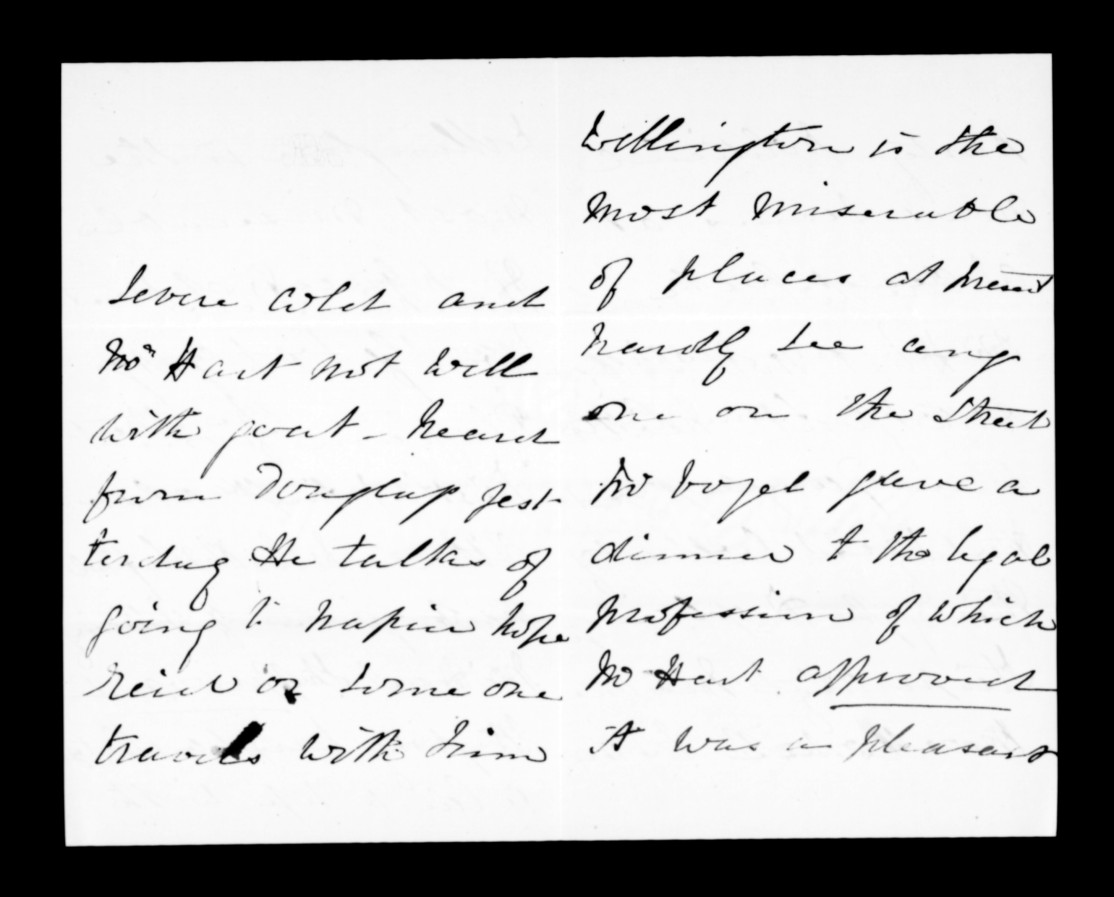 severe cold and
Mr Hart not well
with gout - heard
from Douglas yest
terday He talks of
going to Napier hope
Reid or some one
travels with him
Wellington is the
most miserable
of places at present
hardly see any
one on the street
Mr Vogel gave a
dinner to the legal
profession of which
Mr Hart approved
It was a pleasant